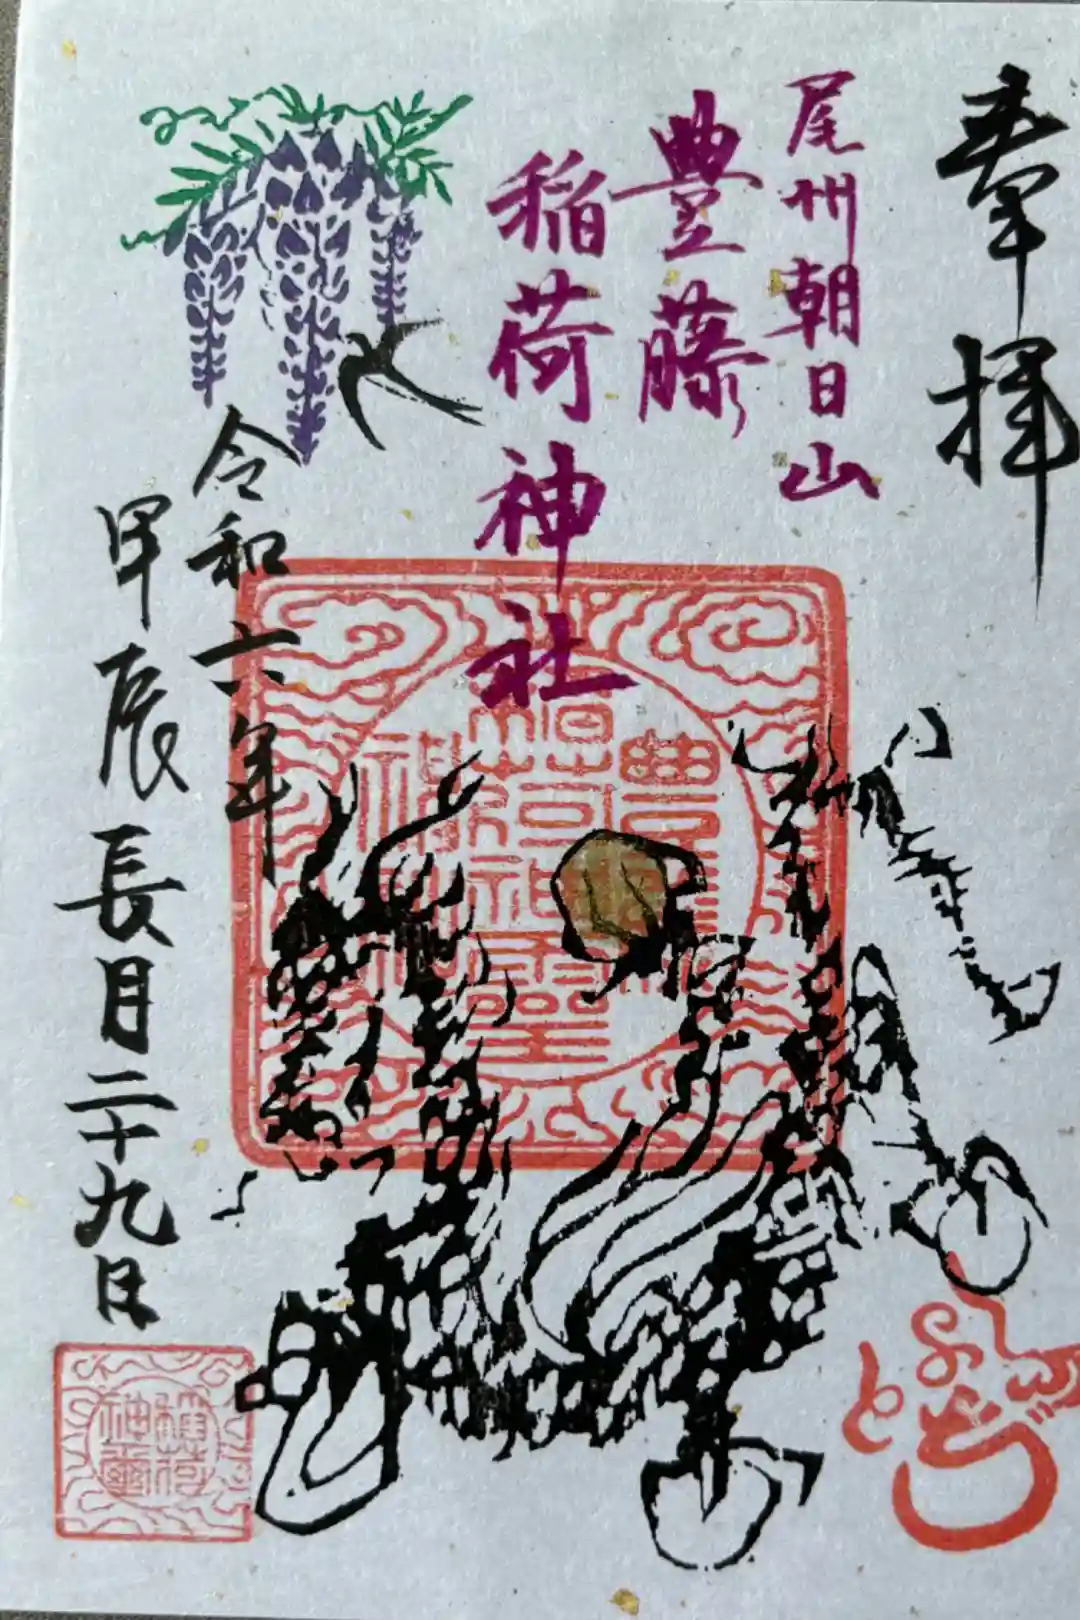 奉拝
尾州朝日山
豊藤
稲荷神社
令和六年
甲辰長月二十九日